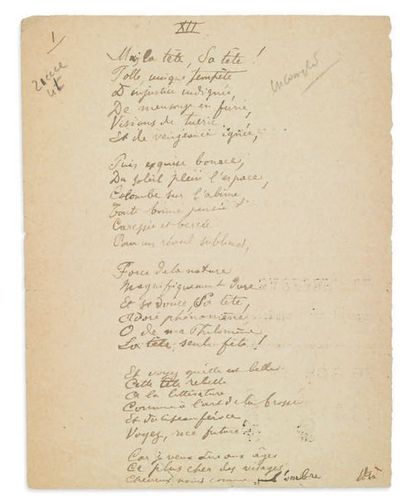 XII
1
Mais la tête, Sa tête !
Folle, unique tempête
D'injustice indignée,
De mensonge en furie,
Visions de tuerie
Et de vengeance ignée,
Puis exquise bonace,
Du soleil plein l'espace,
Colombe sur l'abîme,
Toute bonne pensée
Caressée et bercée
Pour un réveil sublime,
Force de la nature
Magnifiquement dure
Et si douce, Sa tête,
Adoré phénomène
O de ma Philomène
La tête, seule fête !
Et voyez qu'elle est belle
Cette tête rebelle
A la littérature
Comme à l'art de la brosse
Et du ciseau féroce
Voyez, race future !
Car je veux dire aux âges
Ce plus cher des visages
Cheveux noirs comme l'ombre